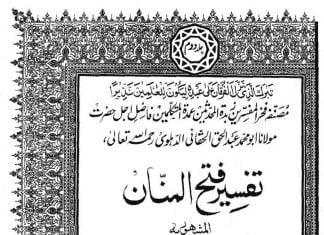 جلد دوم
تبارك الذي نزل الفرقان على عبده ليكون للعلمين نذيرا
مصنفہ فخر المفسرین زبدۃ المحدثین عمدۃ المتکلمین فاضل اجل حضرت
مولانا ابو محمد عبدالحق الحقانی الدہلوی رحمہ اللہ تعالیٰ
تفسیر فتح المنان
المشہور بہ